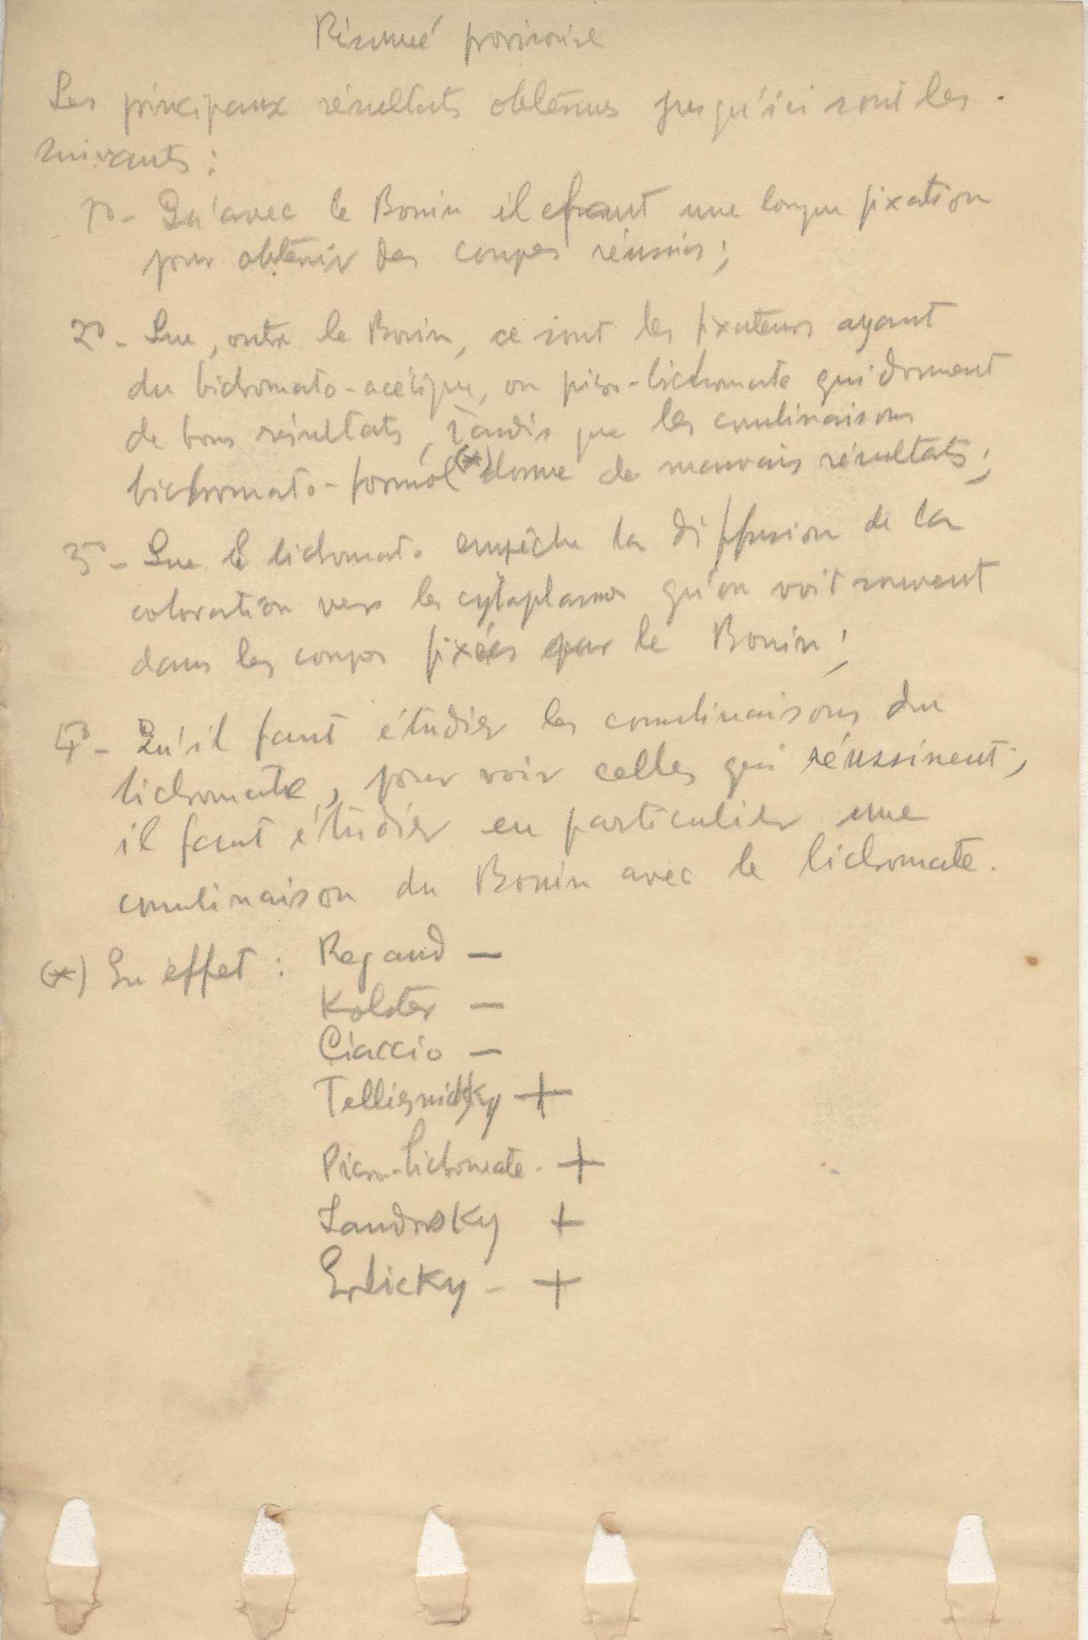 Résumé provisoire
Les principaux résultats obtenus jusqu'ici sont les
suivants :
1º - Qu'avec le Bouin il faut une longue fixation
pour obtenir des coupes réussies ;
2º - Que, outre le Bouin, ce sont les fixateurs ayant
du bichromate-acétique, ou picro-bichromate qui donnent
de bons résultats, tandis que les combinaisons
bichromate-formol (*) donne de mauvais résultats ;
3º - Que le bichromate empêche la diffusion de la
coloration vers les cytoplasmes qu'on voit souvent
dans les coupes fixées par le Bouin ;
4º - Qu'il faut étudier les combinaisons du
bichromate, pour voir celles qui réussissent ;
il faut étudier en particulier une
combinaison du Bouin avec le bichromate.
(*) En effet : Regaud —
Kolster —
Ciaccio —
Telliesnicky +
Picro-bichromate - +
Landowsky +
Erlicky - +